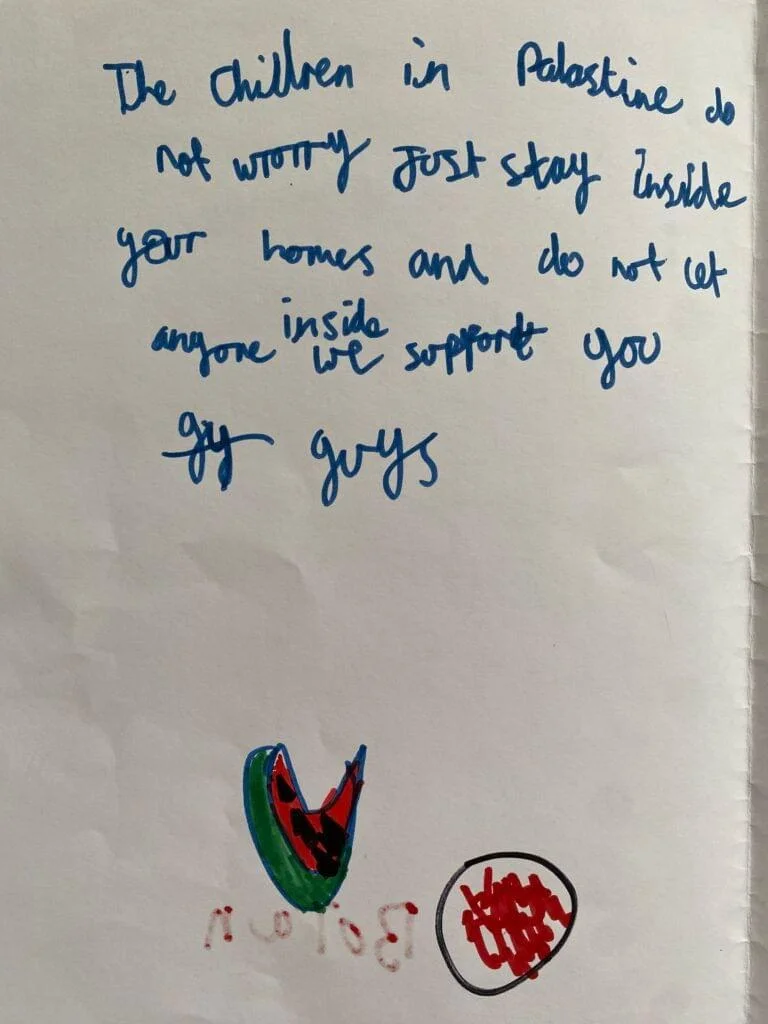 The Chillren in Palastine do
not worry Just stay inside
your homes and do not let
anyone inside we support you
gy guys